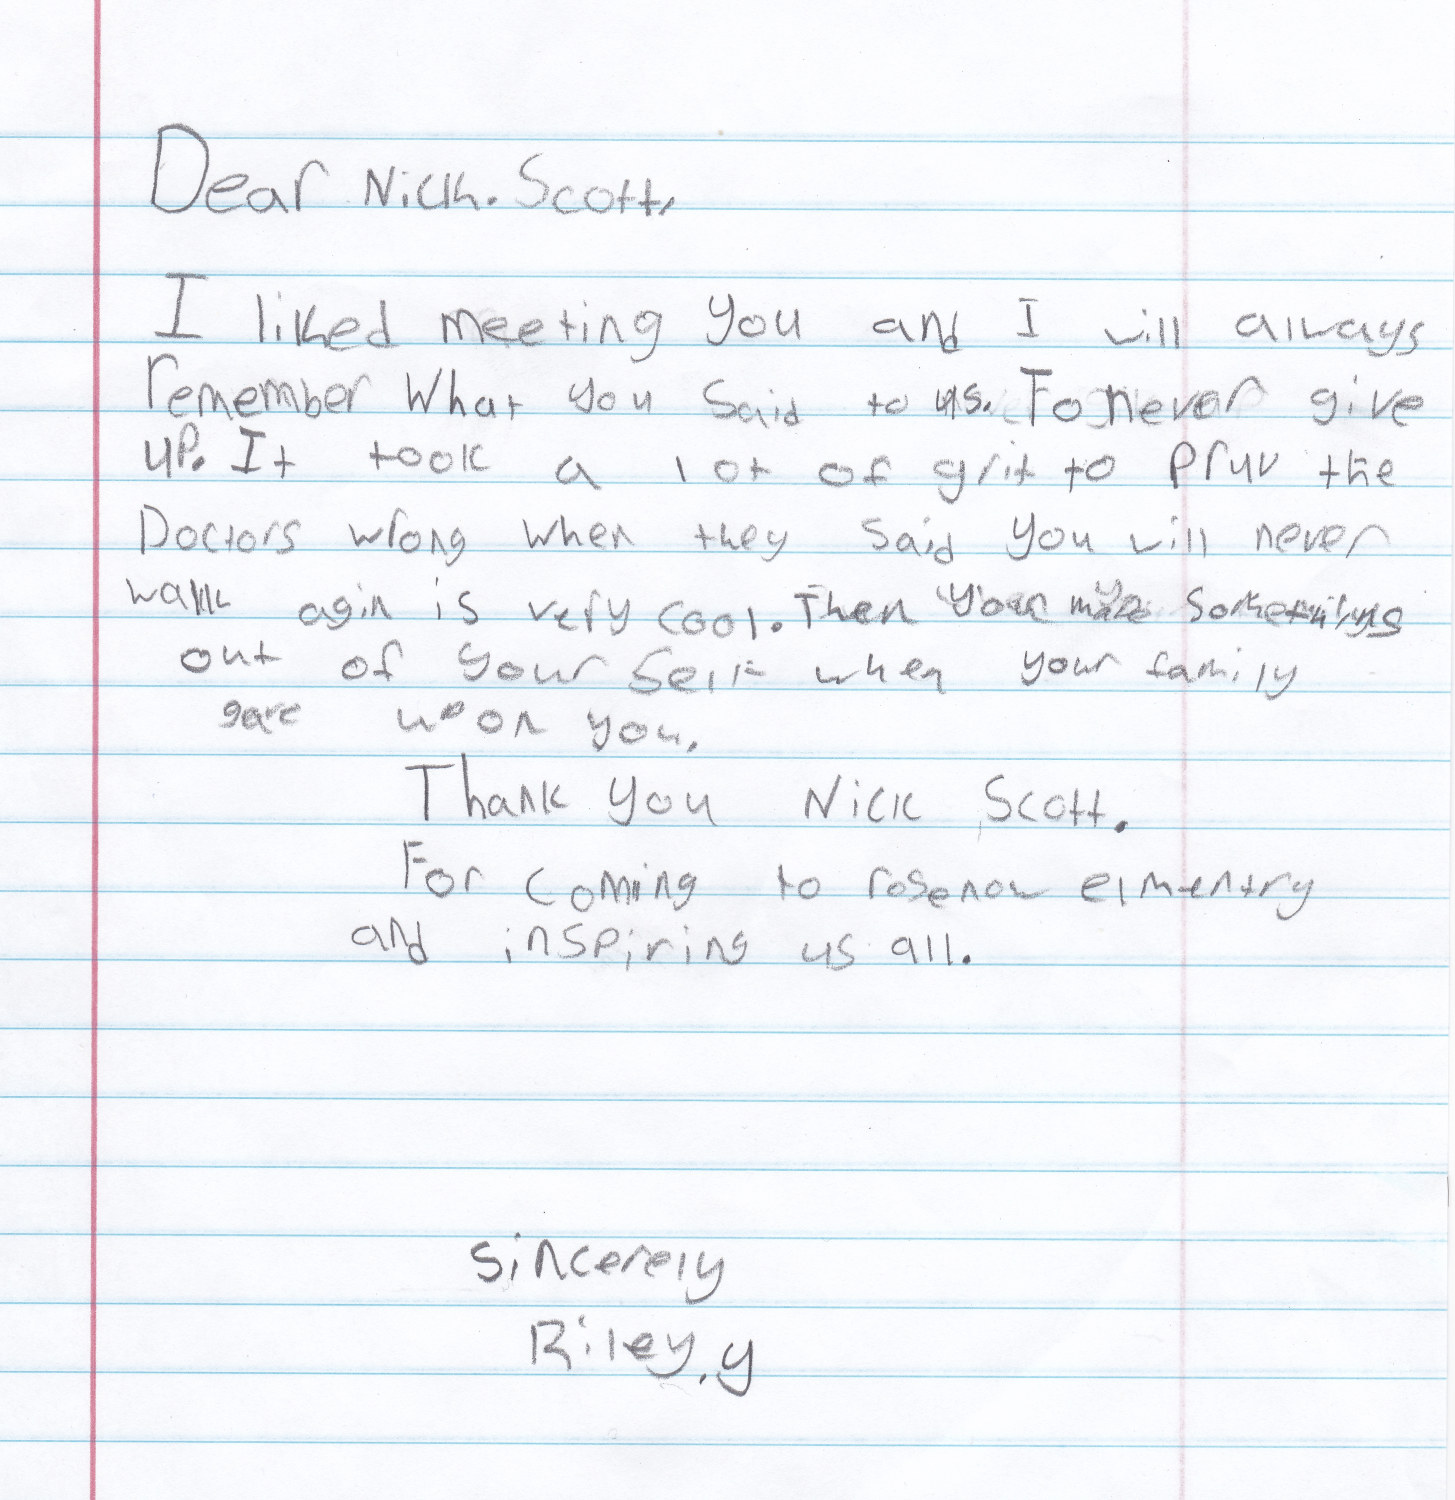 Dear Nick. Scott,
I liked meeting you and I will always
remember What you Said to us. To never give
up. It took a lot of grit to pruv the
Doctors wrong when they Said you will never
walk agin is very cool. Then you made Somethings
out of your Self when your family
gave up on you.
Thank you Nick Scott.
For coming to rosenow elmentry
and inspiring us all.
Sincerely
Riley.y